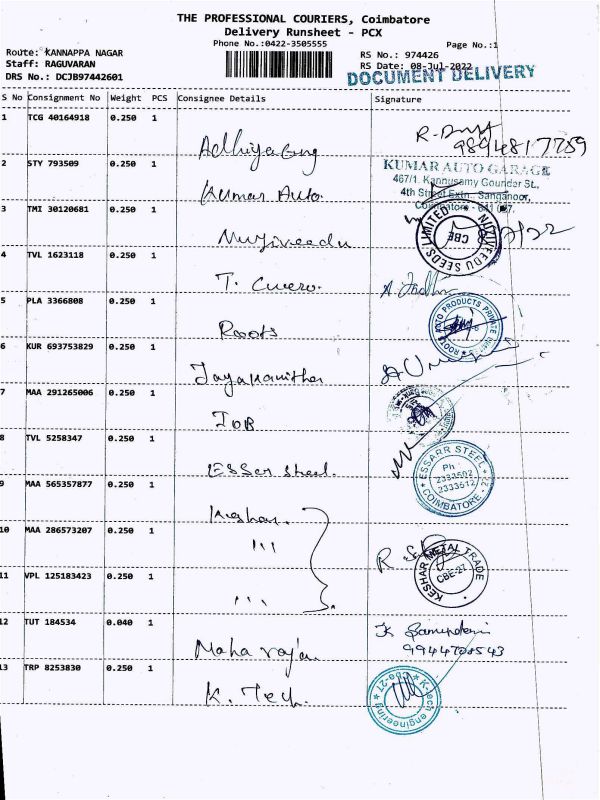 THE PROFESSIONAL COURIERS, Coimbatore
Delivery Runsheet - PCX
Phone No.:0422-3505555
Page No.:1
Route: KANNAPPA NAGAR
RS No.: 974426
Staff: RAGUVARAN
RS Date: 08-Jul-2022
DRS No.: DCJB97442601
DOCUMENT DELIVERY
S No Consignment No Weight PCS Consignee Details Signature
1 TCG 40164918 0.250 1
2 STY 793509 0.250 1
KUMAR AUTO GARAGE
467/1, Kannusamy Gounder St.,
4th Street Extn., Sanganoor,
Kumar Auto.
3 TMI 30120681 0.250 1
NUZIVEEDU SEEDS LIMITED
CBE
4 TVL 1623118 0.250 1
5 PLA 3366808 0.250 1
ROOTS AUTO PRODUCTS PRIVATE
Roots
6 KUR 693753829 0.250 1
7 MAA 291265006 0.250 1
IOB
8 TVL 5258347 0.250 1
ESSARR STEEL
Ph :
2333502
2333512
COIMBATORE - 27
Esser steel.
9 MAA 565357877 0.250 1
Keshar.
10 MAA 286573207 0.250 1
KESHAR METAL TRADE
CBE-27
11 VPL 125183423 0.250 1
12 TUT 184534 0.040 1
Maharaja
9944708543
13 TRP 8253830 0.250 1
K. Tech.
K-tech engineering
cbe-27